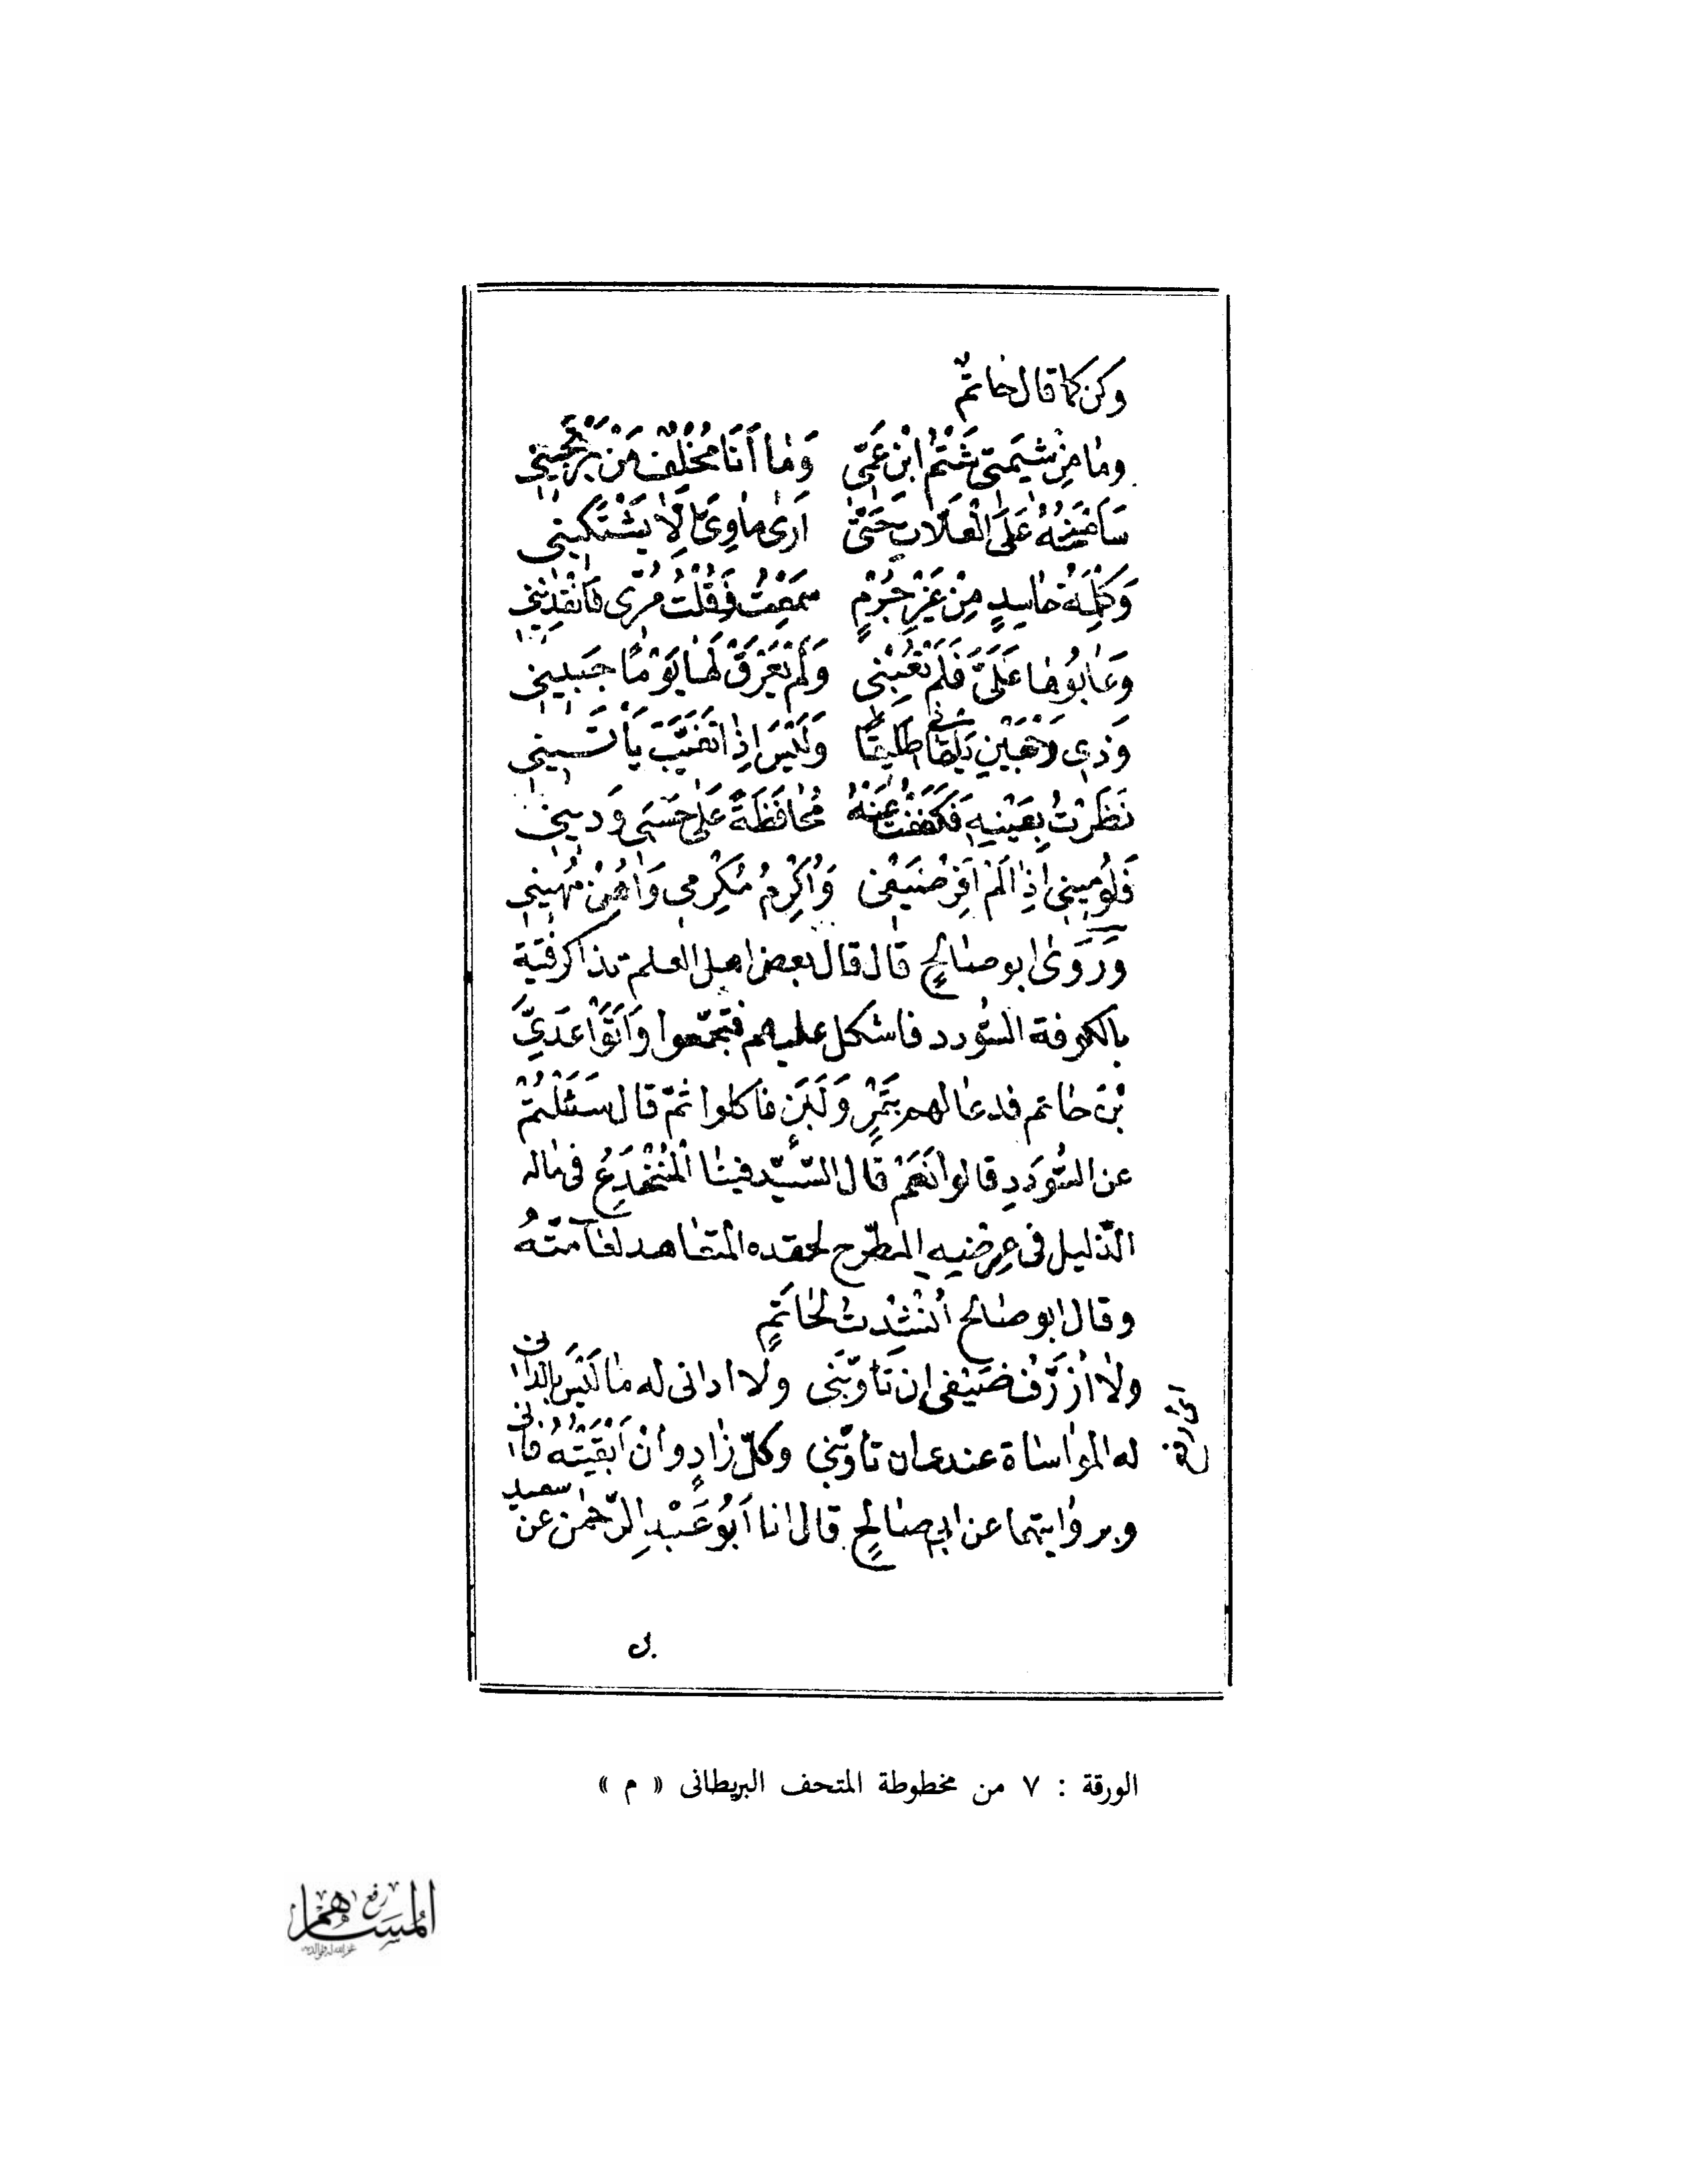 وكن كما قال حاتمٌ
وما مِنْ شيمتي شَتْمُ ابْنِ عَمّي وَمَا أَنَا مُخْلِفٌ مَنْ يَرْتَجيني
سَأمْنَحُهُ عَلَى الْعَلَّاتِ حَتّى أرى ماوِيَّ ألّا يَشْتَكيني
وَكَلِمَةُ حاسِدٍ مِنْ غَيْرِ جُرْمٍ سَمِعْتُ فَقُلْتُ مُرّى فَانْقُذيني
وَعَابُوها عَلَيَّ فَلَمْ تَعِبْني وَلَمْ يَعْرَقْ لَهَا يَوْمًا جَبيني
وَذي وَجْهَيْنِ يَلْقاني طَليقًا وَلَيْسَ اِذا تَغَيَّبَ يَأتَسيني
نَظَرْتُ بِعَيْنِهِ فَكَفَفْتُ عَنْهُ مُحَافَظَةً عَلى حَسَبي وَديني
فَلُوميني اِذا لَمْ اَقْرِ ضَيْفي وَاُكْرِمُ مُكْرِمي وَاُهِنْ مُهيني
وَرَوَى ابو صالحٍ قال قال بعض اهل العلم تذاكر فتية
بالكوفة السّودد فاشكل عليهم فتجمّعوا وَاَتَوْا عَدِيَّ
بْنَ حاتم فدعا لهم بِتَمْرٍ وَلَبَنٍ فاكلوا ثمّ قال سَئَلْتُمْ
عن السُّودَدِ قالوا نَعَمْ قال السّيّد فينا الْمُنْخَدِعُ في ماله
الذّليل في عِرْضِهِ المطّرح لحقده المتعاهد لعَامّتهُ
وقال ابو صالح اُنْشِدْتُ لحاتَمٍ
ولا اُزَرِّفُ ضَيْفي اِن تَأوَّبَني ولا اداني له ما لَيْسَ بالدّاني
له المواساة عندي ان تأوّبني وكلّ زادٍ وان اَبْقَيْتُهُ فاني
وبروايتهما عن ابي صالحٍ قال انا اَبُو عَبْدِ الرّحمن عن سعيد
بن
الورقة : ٧ من مخطوطة المتحف البريطانى « م »
رفع
المساهم
غفر الله له ولوالديه